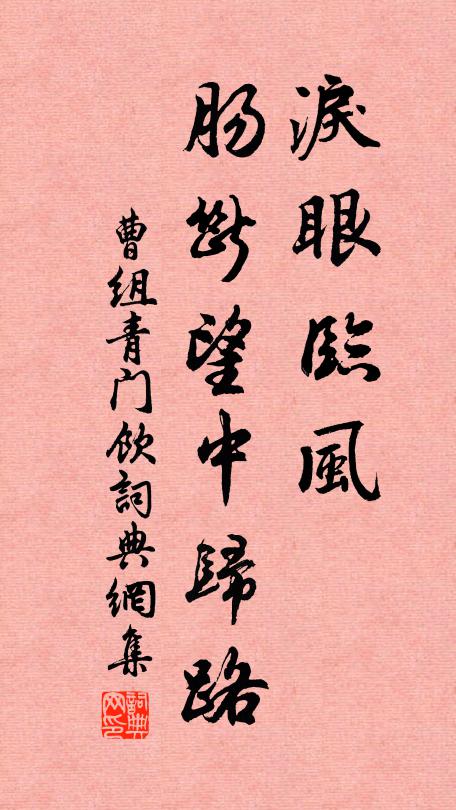 淚眼臨風
肠斷望中歸路
曹组青门飲詞典網集
詞典
网印